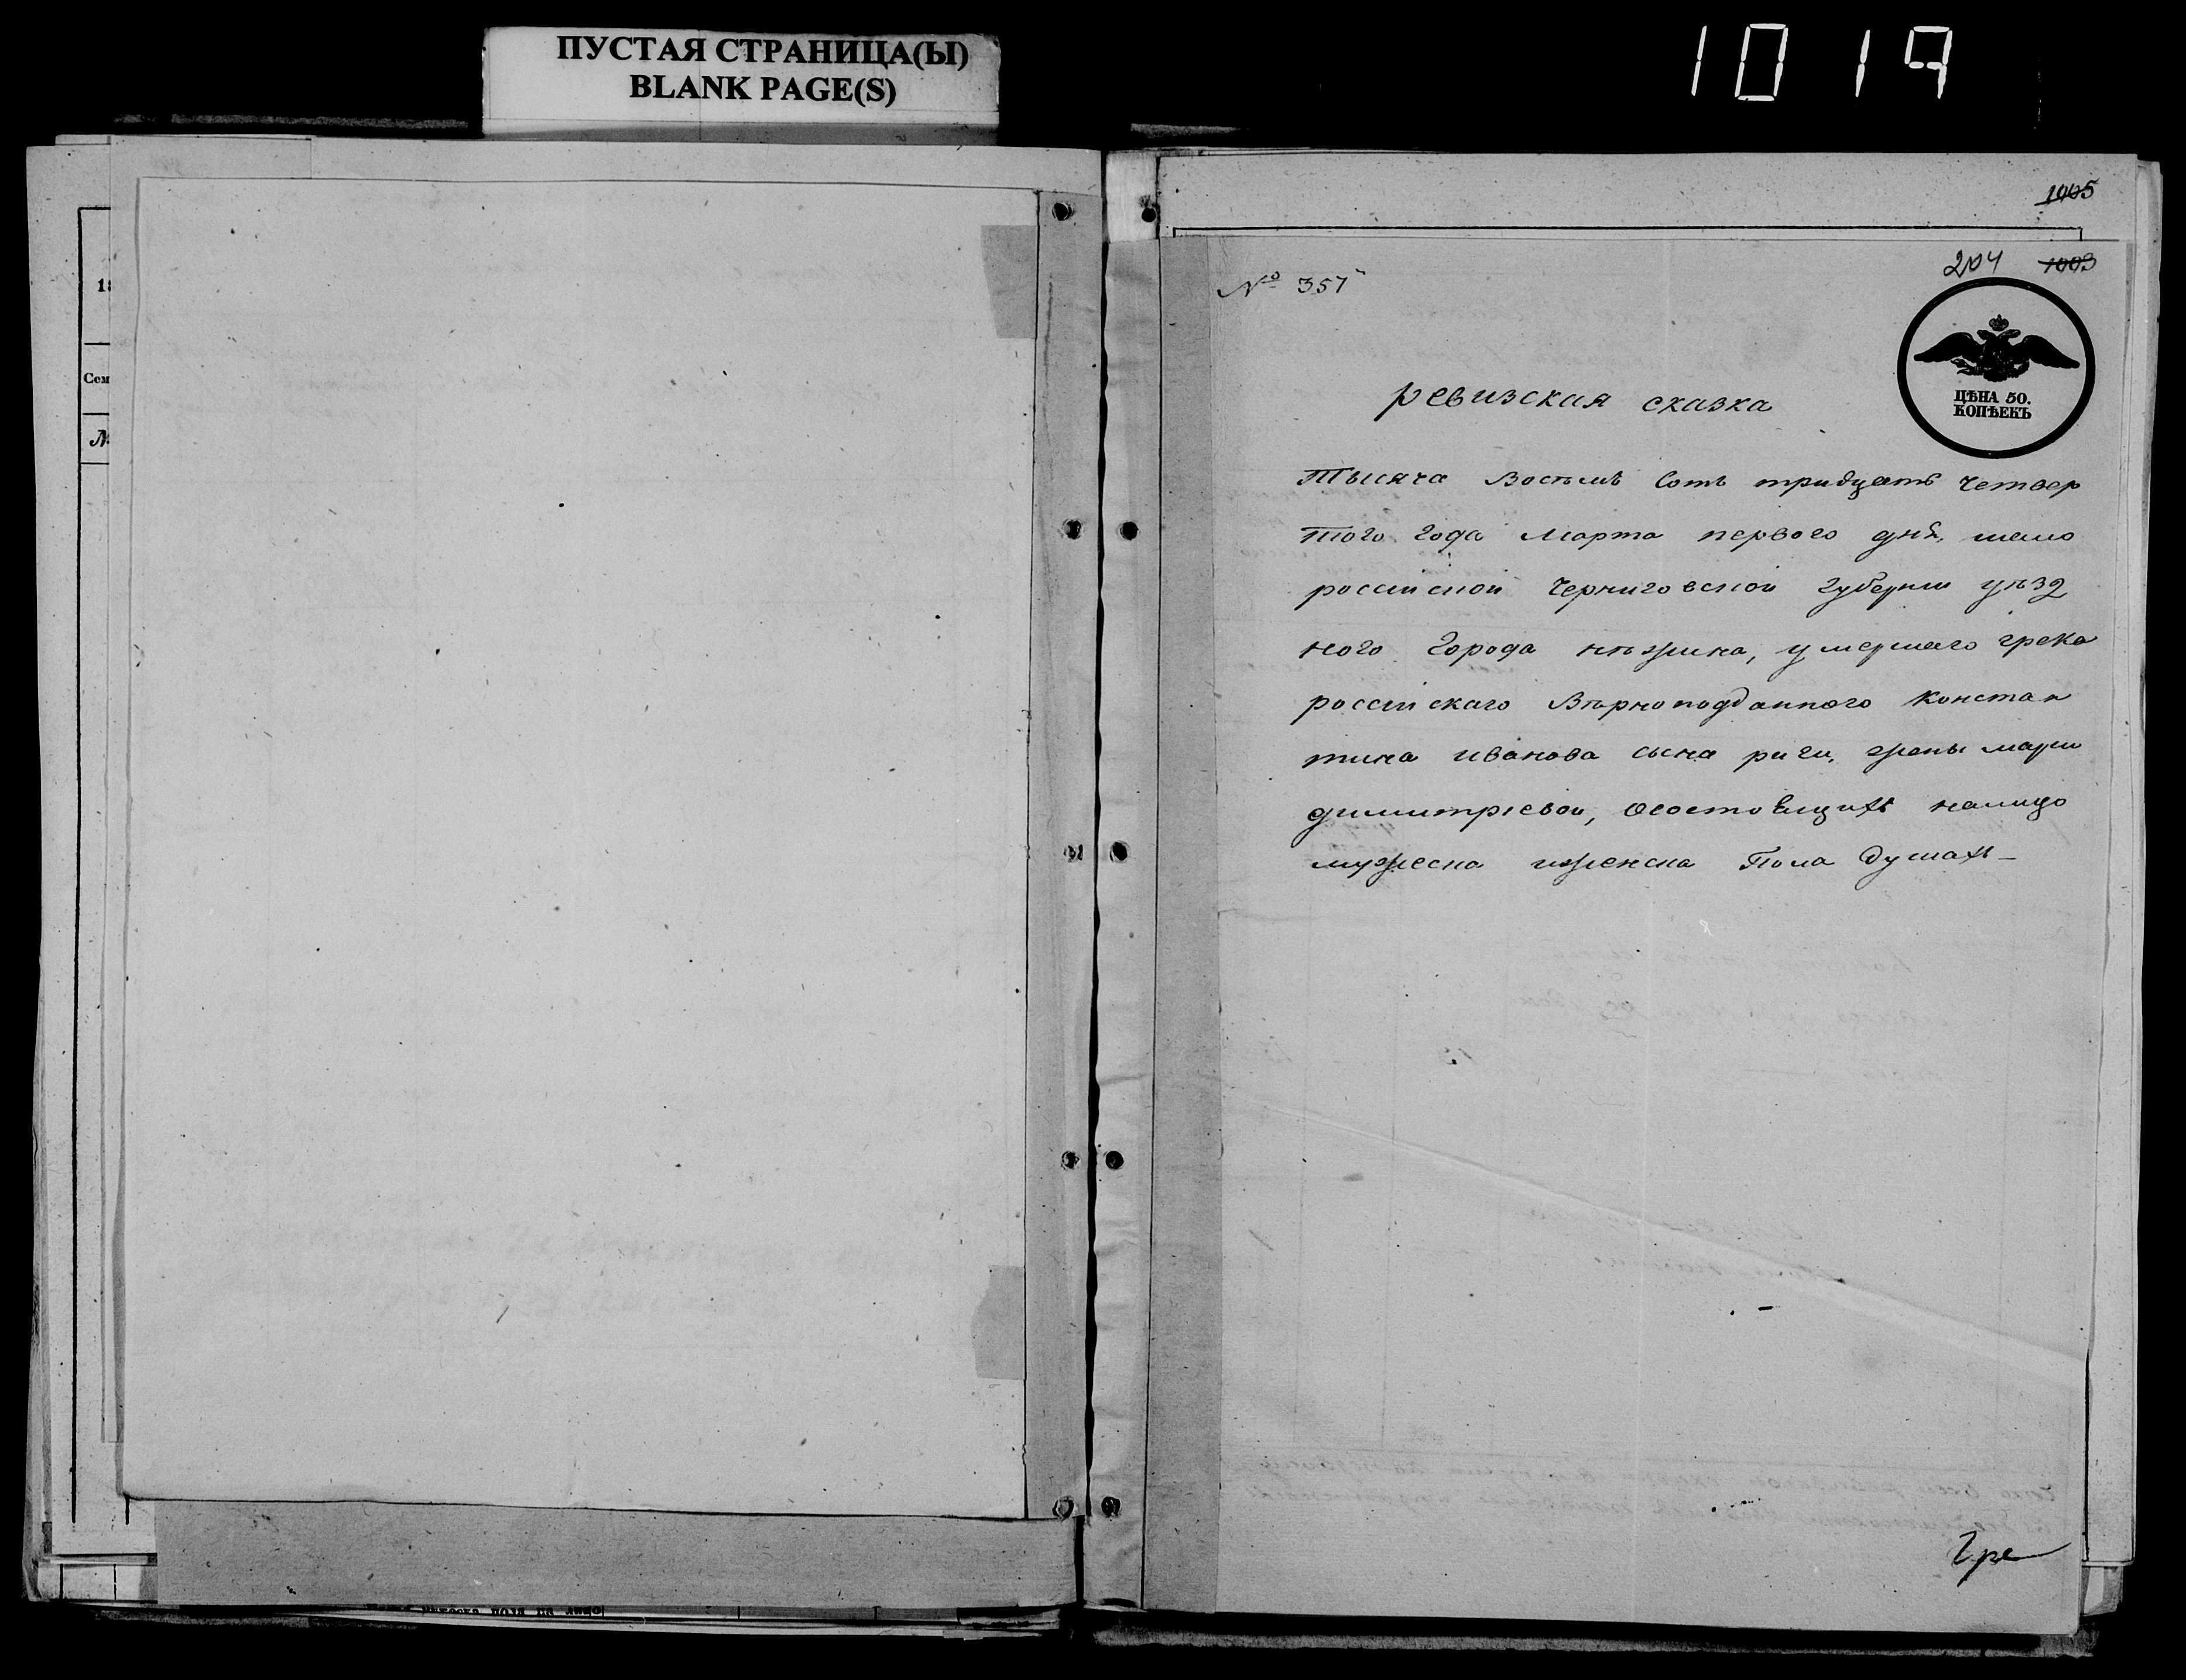 ПУСТАЯ СТРАНИЦА(Ы)
BLANK PAGE(S)
1019
1005
204 1003
№ 357
ЦѢНА 50.
КОПѢЕКЪ
ревизская сказка
Тысяча Восемь Сотъ тридцать четвер
таго года марта первого дня, мало
россійской Черниговской губерніи уѣзд
ного Города нѣжина, умершаго грека
россійскаго Вѣрноподданного констан
тина иванова сына риги, жены маріи
димитріевой, осостоящихъ налицо
мужеска иженска Пола душахъ
Гре
Сем
№